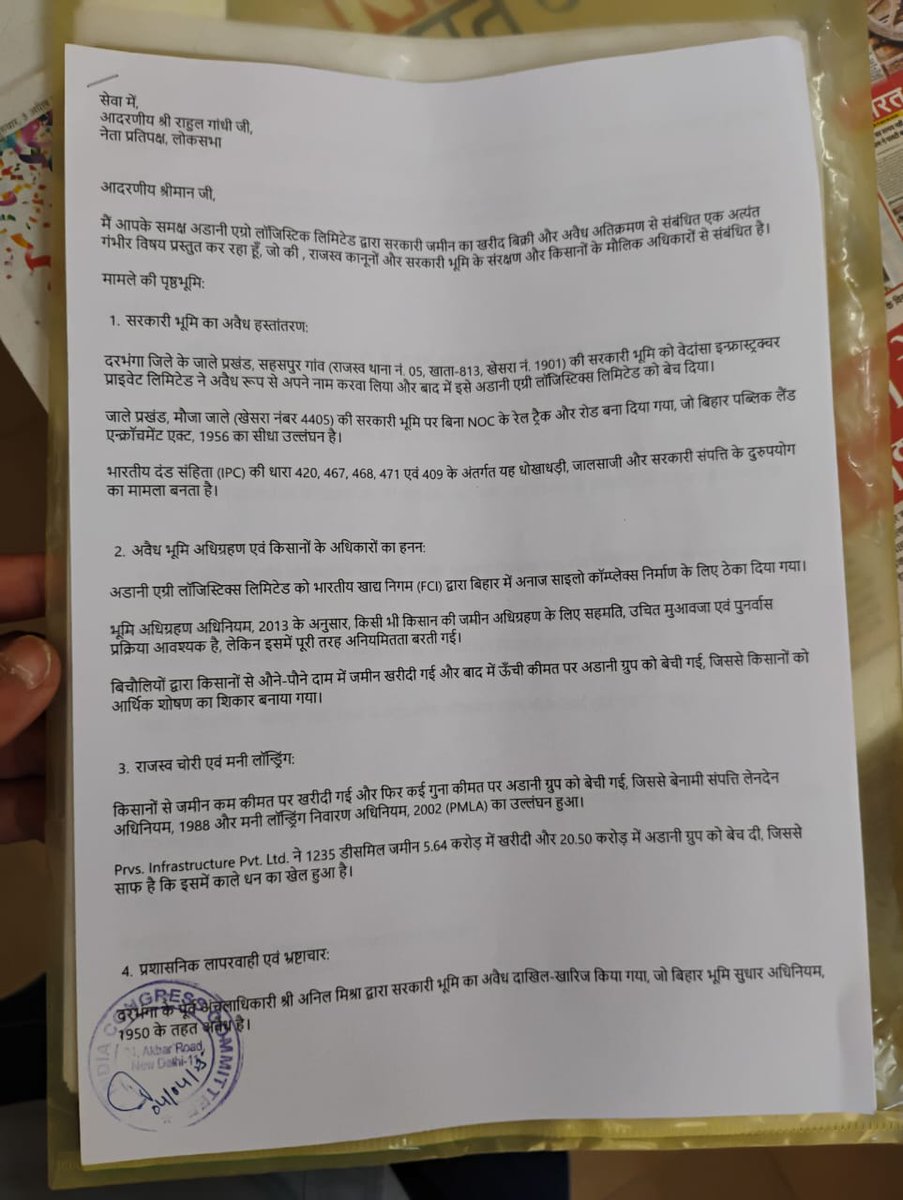 सेवा में,
आदरणीय श्री राहुल गांधी जी,
नेता प्रतिपक्ष, लोकसभा
आदरणीय श्रीमान जी,
मैं आपके समक्ष अडानी एग्रो लॉजिस्टिक लिमिटेड द्वारा सरकारी जमीन का खरीद बिक्री और अवैध अतिक्रमण से संबंधित एक अत्यंत
गंभीर विषय प्रस्तुत कर रहा हूँ, जो की , राजस्व कानूनों और सरकारी भूमि के संरक्षण और किसानों के मौलिक अधिकारों से संबंधित है।
मामले की पृष्ठभूमि:
1. सरकारी भूमि का अवैध हस्तांतरण:
दरभंगा जिले के जाले प्रखंड, सहसपुर गांव (राजस्व थाना नं. 05, खाता-813, खेसरा नं. 1901) की सरकारी भूमि को वेदांसा इन्फ्रास्ट्रक्चर
प्राइवेट लिमिटेड ने अवैध रूप से अपने नाम करवा लिया और बाद में इसे अडानी एग्री लॉजिस्टिक्स लिमिटेड को बेच दिया।
जाले प्रखंड, मौजा जाले (खेसरा नंबर 4405) की सरकारी भूमि पर बिना NOC के रेल ट्रैक और रोड बना दिया गया, जो बिहार पब्लिक लैंड
एन्क्रॉचमेंट एक्ट, 1956 का सीधा उल्लंघन है।
भारतीय दंड संहिता (IPC) की धारा 420, 467, 468, 471 एवं 409 के अंतर्गत यह धोखाधड़ी, जालसाजी और सरकारी संपत्ति के दुरुपयोग
का मामला बनता है।
2. अवैध भूमि अधिग्रहण एवं किसानों के अधिकारों का हनन:
अडानी एग्री लॉजिस्टिक्स लिमिटेड को भारतीय खाद्य निगम (FCI) द्वारा बिहार में अनाज साइलो कॉम्प्लेक्स निर्माण के लिए ठेका दिया गया।
भूमि अधिग्रहण अधिनियम, 2013 के अनुसार, किसी भी किसान की जमीन अधिग्रहण के लिए सहमति, उचित मुआवजा एवं पुनर्वास
प्रक्रिया आवश्यक है, लेकिन इसमें पूरी तरह अनियमितता बरती गई।
बिचौलियों द्वारा किसानों से औने-पौने दाम में जमीन खरीदी गई और बाद में ऊँची कीमत पर अडानी ग्रुप को बेची गई, जिससे किसानों को
आर्थिक शोषण का शिकार बनाया गया।
3. राजस्व चोरी एवं मनी लॉन्ड्रिंग:
किसानों से जमीन कम कीमत पर खरीदी गई और फिर कई गुना कीमत पर अडानी ग्रुप को बेची गई, जिससे बेनामी संपत्ति लेनदेन
अधिनियम, 1988 और मनी लॉन्ड्रिंग निवारण अधिनियम, 2002 (PMLA) का उल्लंघन हुआ।
Prvs. Infrastructure Pvt. Ltd. ने 1235 डीसमिल जमीन 5.64 करोड़ में खरीदी और 20.50 करोड़ में अडानी ग्रुप को बेच दी, जिससे
साफ है कि इसमें काले धन का खेल हुआ है।
4. प्रशासनिक लापरवाही एवं भ्रष्टाचार:
दरभंगा के पूर्व अंचलाधिकारी श्री अनिल मिश्रा द्वारा सरकारी भूमि का अवैध दाखिल-खारिज किया गया, जो बिहार भूमि सुधार अधिनियम,
1950 के तहत अवैध है।
INDIA CONGRESS COMMITTEE
Akbar Road,
New Delhi-11
04/04/25